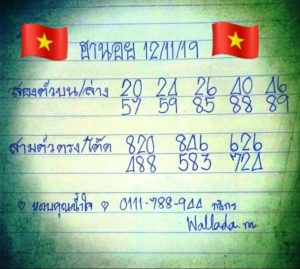 ฮานอย 12/11/19
สองตัวบน/ล่าง 20 24 26 40 46
57 59 85 88 89
สามตัวตรง/โต๊ด 820 846 626
488 583 724
ขอบคุณน้ำใจ 0111-788-944 กสิกร
Wallada.m